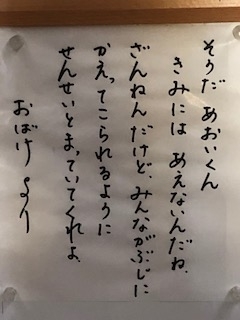 そうだ あおいくん
きみには あえないんだね。
ざんねんだけど、みんながぶじに
かえってこられるように
せんせいとまっていてくれよ。
おばけ より